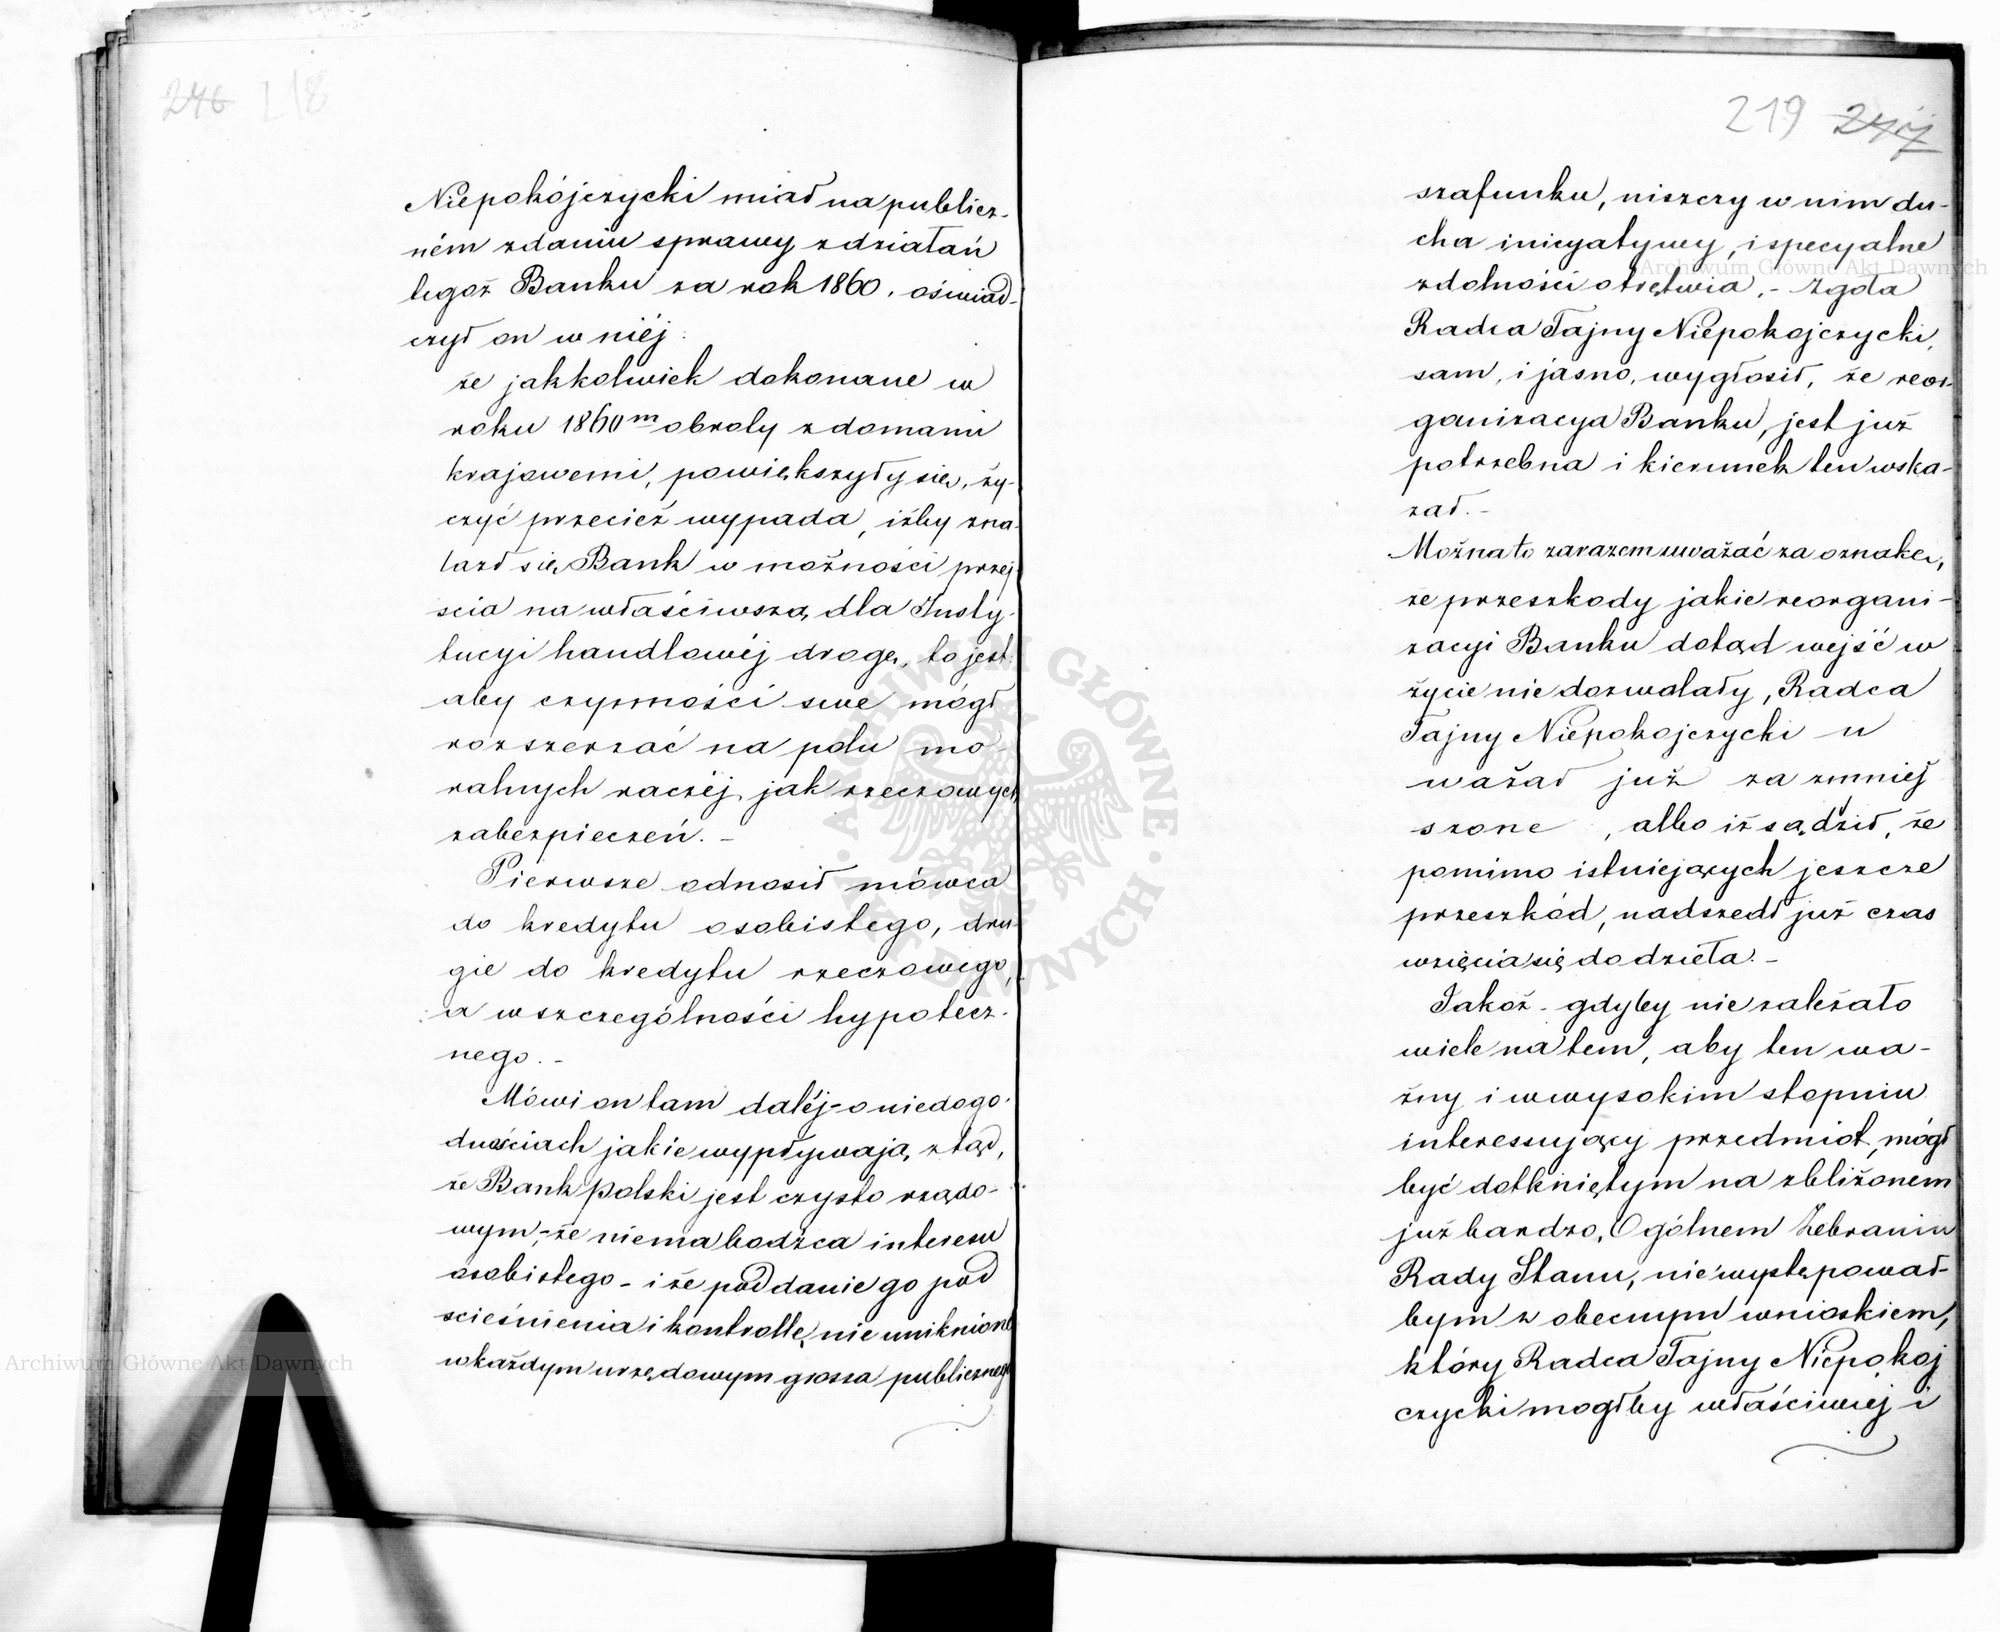 246 218
Niepokójczycki miał na publicz-
ném zdaniu sprawy z działań
tegoż Banku za rok 1860. oświad-
czył on w niéj:
że jakkolwiek dokonane w
roku 1860m obroty z domami
krajowemi, powiększyły się, ży-
czyć przecież wypada, iżby zna-
lazł się Bank w możności przej
ścia na właściwszą dla Insty-
tucyi handlowéj drogę, to jest:
aby czynności swe mógł
rozszerzać na polu mo-
ralnych raczéj, jak rzeczowych
zabezpieczeń. -
Pierwsze odnosił mówca
do kredytu osobistego, dru-
gie do kredytu rzeczowego,
a w szczególności hypotecz-
nego. -
Mówi on tam daléj - o niedogo-
dnościach jakie wypływają ztąd,
że Bank polski jest czysto rządo-
wym, - że niema bodźca interesu
osobistego - i że poddanie go pod
ścieśnienia i kontrollę, nie uniknione
w każdym urzędowym grosza publicznego
219 247
szafunku, niszczy w nim du-
cha inicyatywy, i specyalne
zdolności otrętwia. - Zgoła
Radca Tajny Niepokojczycki,
sam, i jasno, wygłosił, że reor-
ganizacya Banku, jest już
potrzebna i kierunek ten wska-
zał. -
Można to zarazem uważać za oznakę,
że przeszkody jakie reorgani-
zacyi Banku dotąd wejść w
życie nie dozwalały, Radca
Tajny Niepokojczycki u
ważał już za zmniej
szone , albo iż sądził, że
pomimo istniejących jeszcze
przeszkód, nadszedł już czas
wzięcia się do dzieła. -
Jakoż - gdyby nie zależało
wiele na tem, aby ten wa-
żny i w wysokim stopniu
interessujący przedmiot, mógł
być dotkniętym na zbliżonem
już bardzo, Ogólnem Zebraniu
Rady Stanu, nie występował-
bym z obecnym wnioskiem,
który Radca Tajny Niepokoj
czycki mogłby właściwiej i
Archiwum Główne Akt Dawnych
Archiwum Główne Akt Dawnych
ARCHIWUM GŁÓWNE AKT DAWNYCH